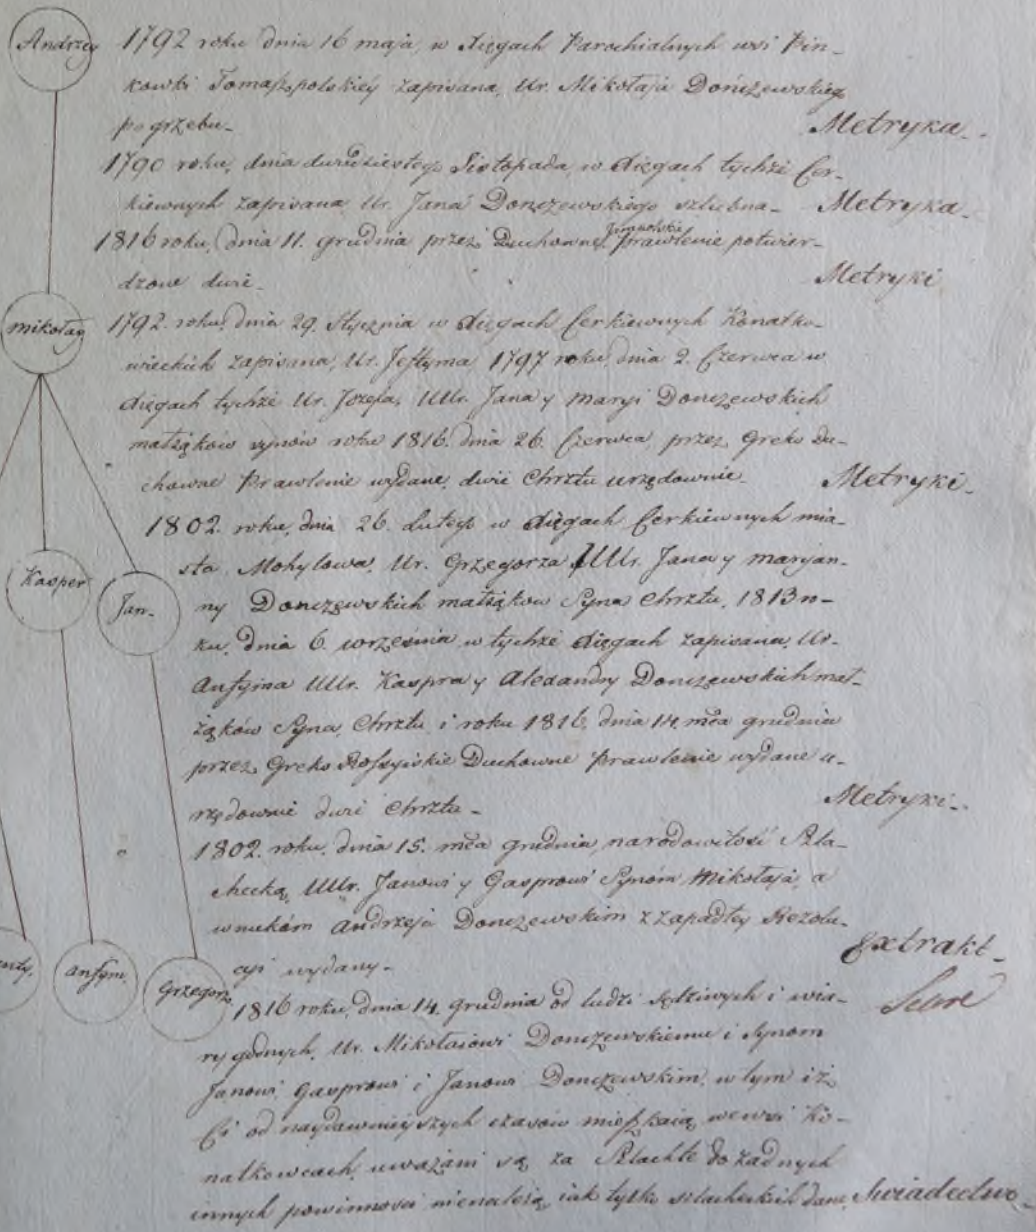 Andrzey
1792 roku dnia 16 maja, w xięgach Parochialnych wsi Pin-
kowki Tomaszpolskiéy zapisana, Ur. Mikołaja Dończewskieg
pogrzebu-
Metryka-
1790 roku, dnia dwudziestego Listopada, w xięgach tychże Cer-
kiewnych zapisana, Ur. Jana Donczewskiego szlubna-
Metryka-
1816 roku, dnia 11. grudnia przez Duchowne Prawlenie potwier-
dzone dwie-
Metryki
mikołay
1792. roku, dnia 29. Stycznia w xięgach Cerkiewnych Konatko-
wieckich zapisana, Ur. Jeftyma 1797 roku, dnia 2. Czerwca w
xięgach tychże Ur. Jozefa, UUr. Jana y maryi Donczewskich
małżąków synów roku 1816. dnia 26. Czerwca, przez Greko Du-
chowne Prawlenie wydane, dwie Chrztu urzędownie-
Metryki-
1802. roku, dnia 26. Lutego w xięgach Cerkiewnych mia-
sta Mohylowa, Ur. Grzegorza UUr. Jana y maryan-
Kasper
Jan-
ny Donczewskich małżąkow Syna Chrztu, 1813 ro-
ku, dnia 6. września w tychże xięgach zapisana, Ur.
Anfyma UUr. Kaspra y Alexandry Donczewskich mał-
żąków Syna Chrztu i roku 1816, dnia 14. mca grudnia
przez Greko Rossyiskie Duchowne Prawlenie wydane u-
rzędownie dwie Chrztu-
Metryki-
1802. roku, dnia 15. mca grudnia, narodowitość Szla-
checką, UUr. Janowi y Gasprowi Synóm Mikołaja, a
wnukóm Andrzeja Donczewskim z zapadłey Rezolu-
cyi wydany-
Extrakt-
anfym.
Grzegorz.
1816 roku, dnia 14. grudnia od ludzi sędziwych i wia-
ry godnych, Ur. Mikołaiowi Donczewskiemu i Synom
Janowi, Gasprowi i Janowi Donczewskim, w tym iż
Ci od naydawnieyszych czasów mieszkaią we wsi Ko-
natkowcach, uważani są za Szlachte do żadnych
innych powinności nienależą, iak tylko szlacheckich dane,
Swiadectwo